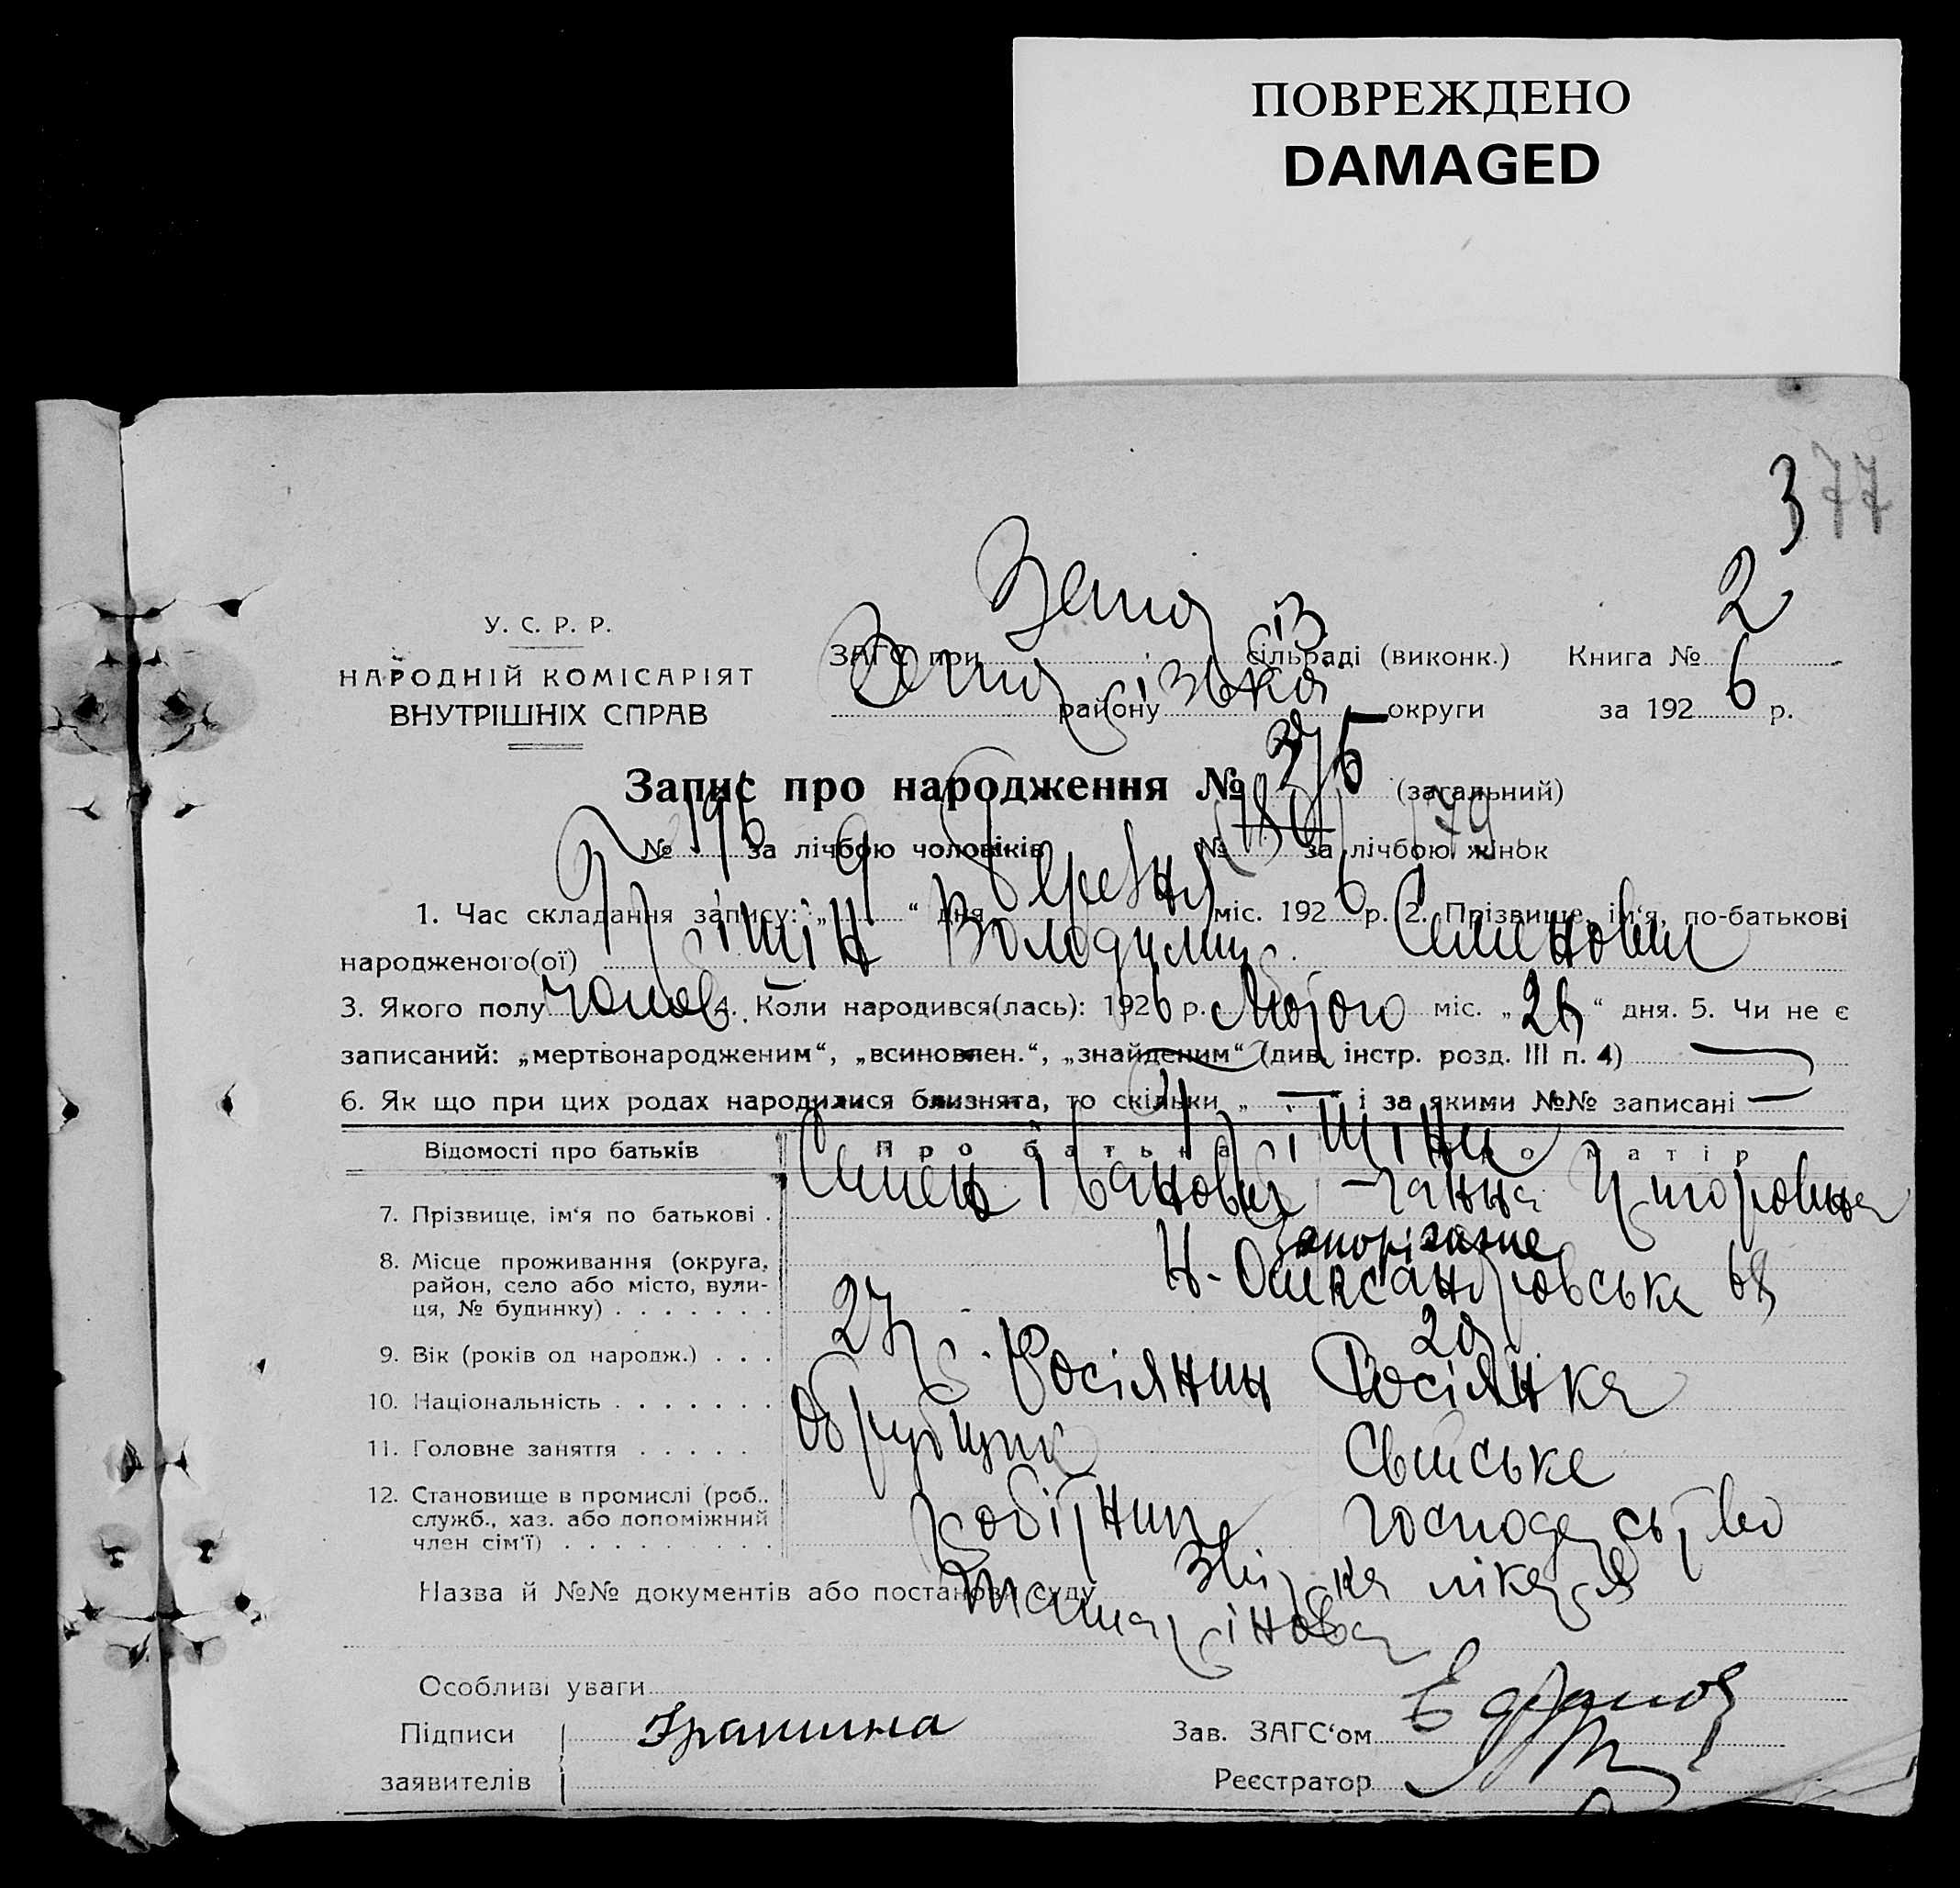 ПОВРЕЖДЕНО
DAMAGED
377
У. С. Р. Р.
НАРОДНІЙ КОМІСАРІЯТ
ВНУТРІШНІХ СПРАВ
ЗАГС при сільраді (виконк.) Книга № 2
району округи за 1926 р.
Запис про народження № (загальний)
№ 196 за лічбою чоловіків № за лічбою жінок
1. Час складання запису: „9“ дня Червня міс. 1926 р. 2. Прізвище, ім‘я, по-батькові
народженого(ої) Володимир Семенович
3. Якого полу чолов. 4. Коли народився(лась): 1926 р. М міс. „26“ дня. 5. Чи не є
записаний: „мертвонародженим“, „всиновлен.“, „знайденим“ (див. інстр. розд. III п. 4) —
6. Як що при цих родах народилися близнята, то скільки „—“ і за якими №№ записані —
Відомості про батьків Про батька Про матір
7. Прізвище, ім‘я по батькові . Семен Іванович – Ганна
8. Місце проживання (округа, район, село або місто, вулиця, № будинку) . . . . . . . Запоріжже
Н-Олександровська 68
9. Вік (років од народж.) . . . 27
10. Національність . . . . . . . Росіянин Росіянка
11. Головне заняття . . . . . Обрубщик Свійське
12. Становище в промислі (роб., служб., хаз. або допоміжний член сім‘ї) . . . . . . . . . робітник господарство
Назва й №№ документів або постанови суду лікаря
Особливі уваги
Підписи Гришина Зав. ЗАГС‘ом
заявителів Реєстратор